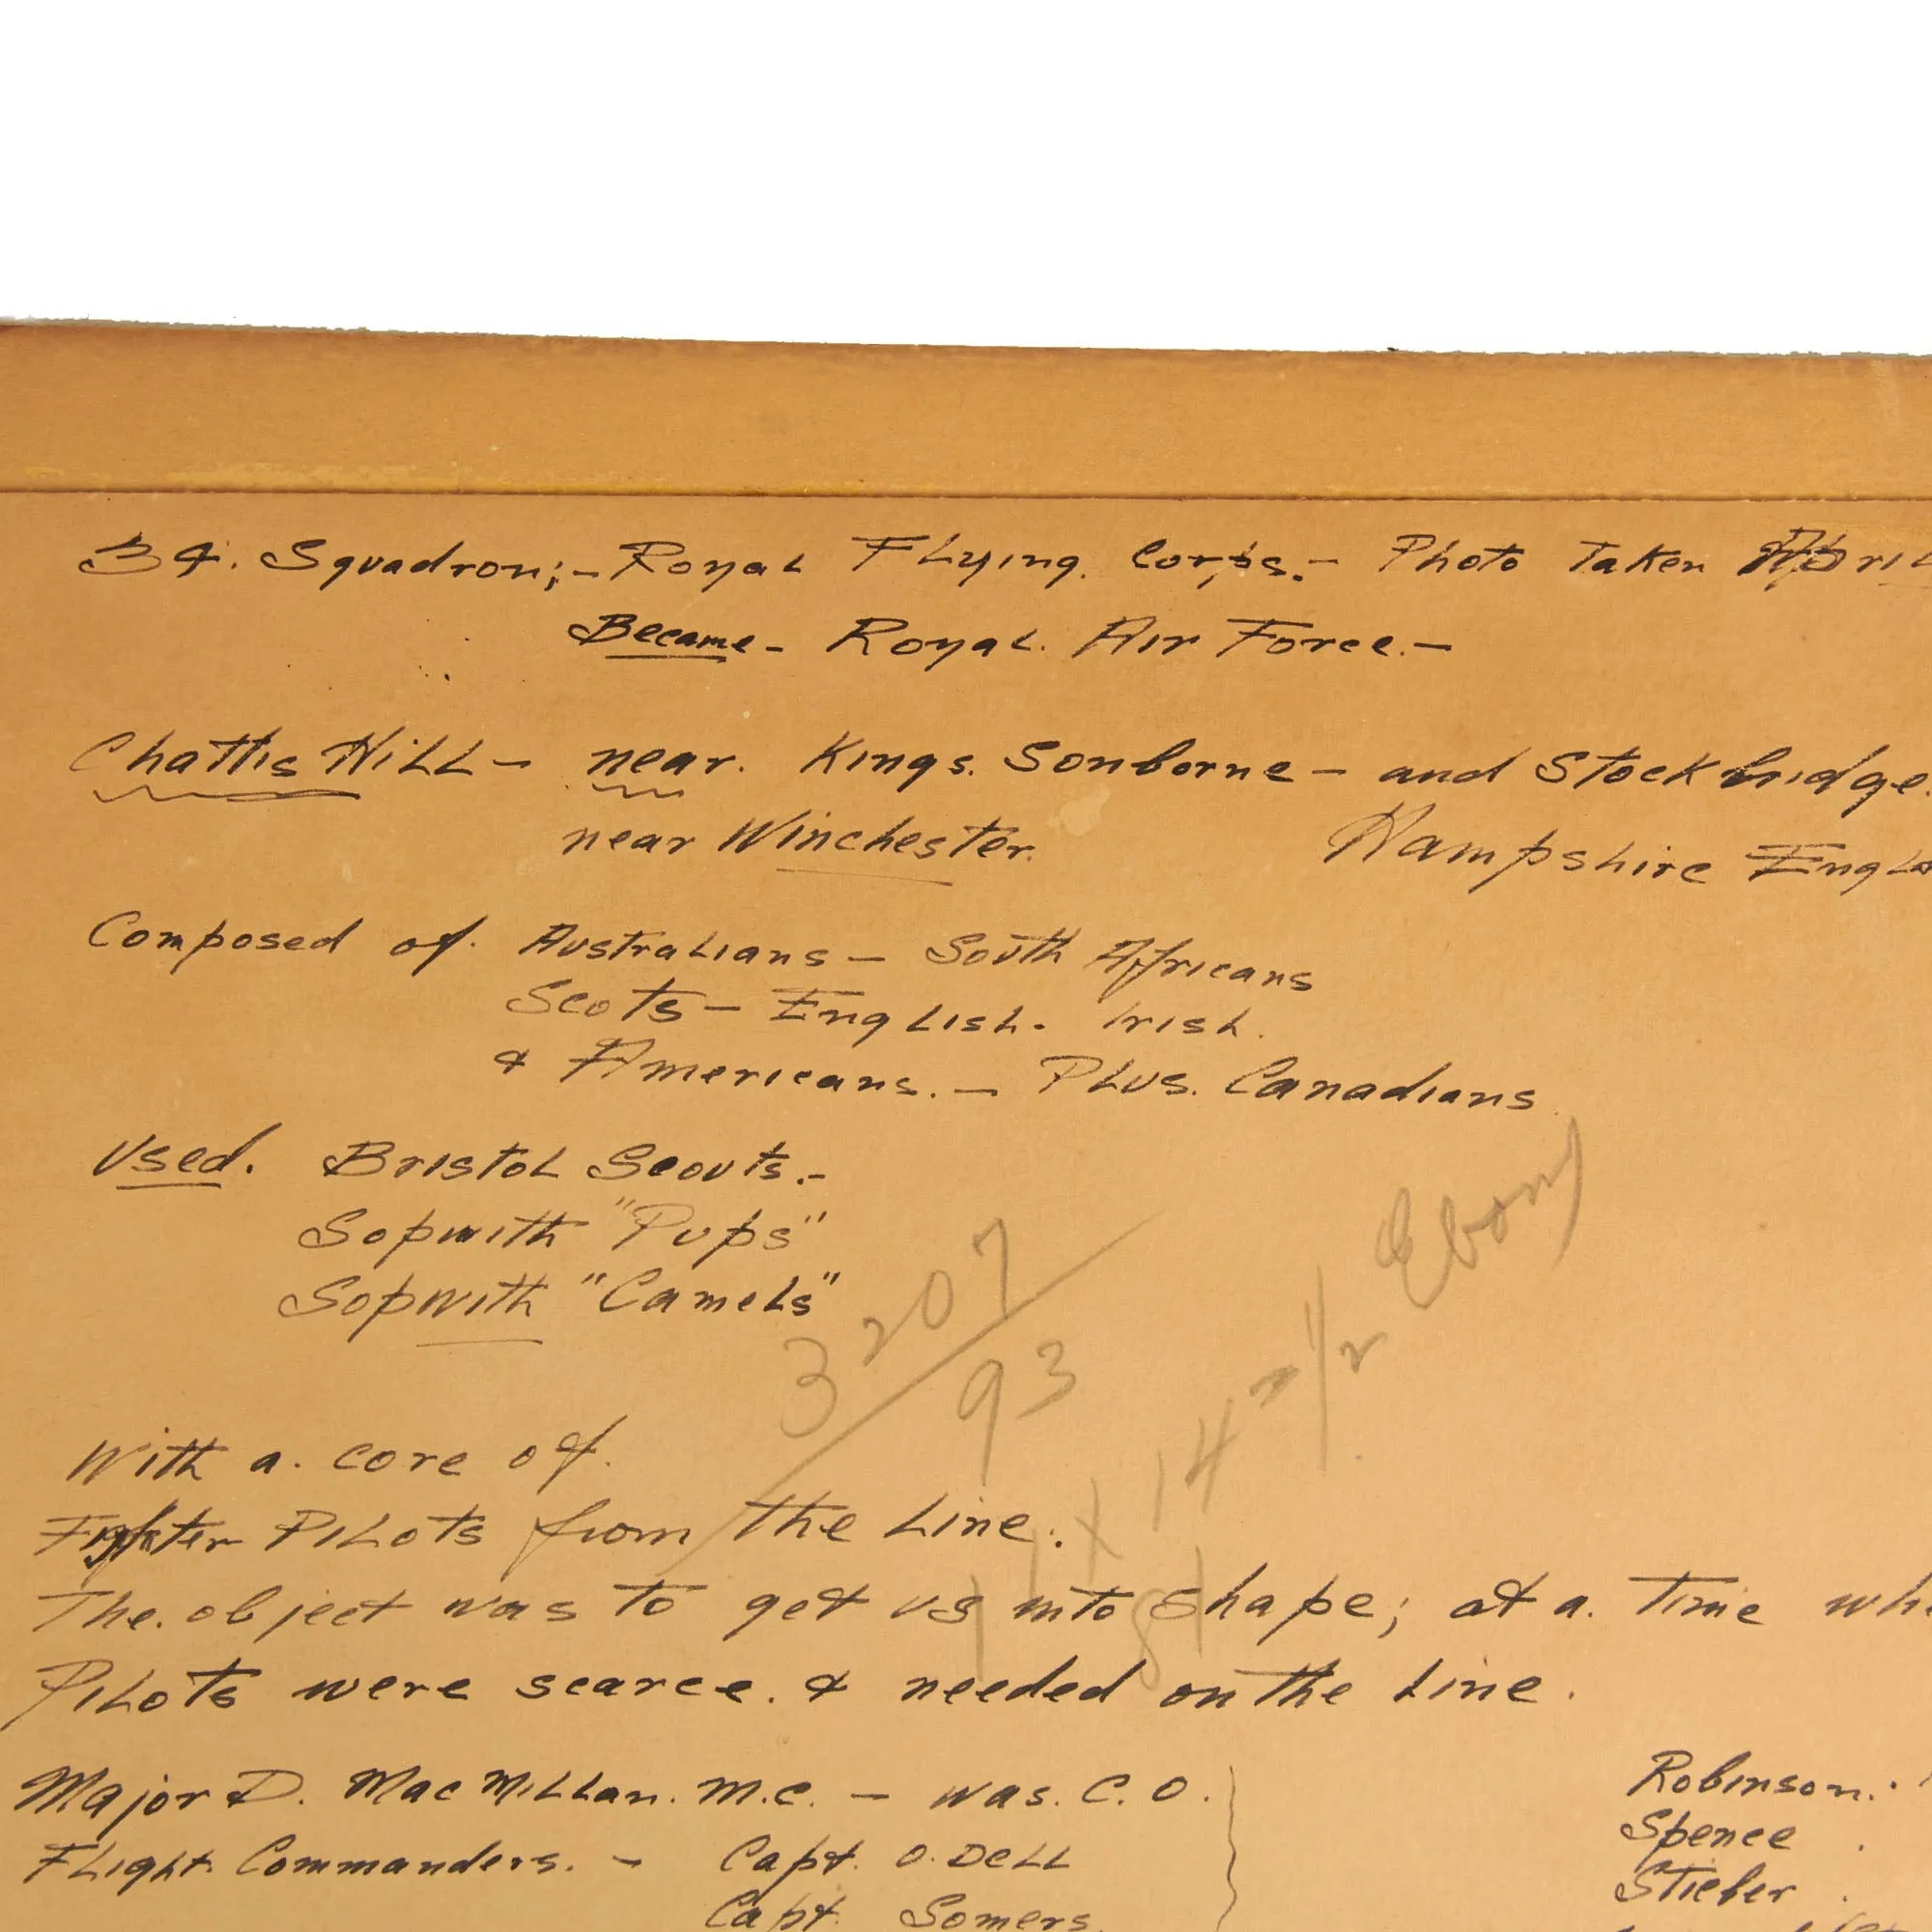 34. Squadron;- Royal Flying. Corps.- Photo Taken April
Became - Royal. Air Force.-
Chattis Hill - near. Kings. Sonborne - and Stockbridge.
near Winchester.
Hampshire Engla
Composed of. Australians - South Africans
Scots - English. Irish.
& Americans. - Plus. Canadians
Used. Bristol Scouts.-
Sopwith "Pups"
Sopwith "Camels"
3207/93
11 x 14 = 1/2 Ebony
81
With a. core of.
Fighter Pilots from the Line.
The. object was to get us into shape; at a. Time whe
Pilots were scarce. & needed on the Line.
Major D. MacMillan. M.C. - was. C.O.
Flight. Commanders. - Capt. O.Dell
Capt. Somers.
Robinson.
Spence
Stieber